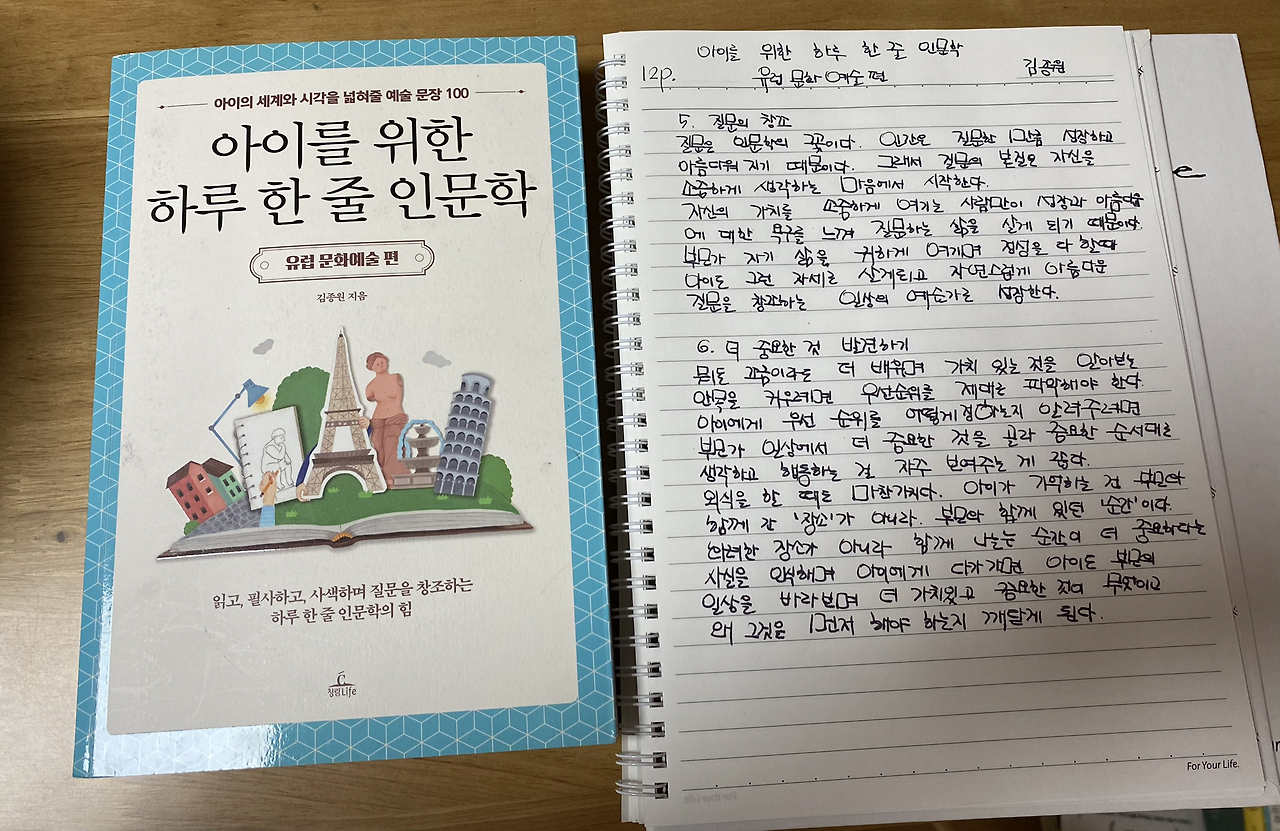 아이의 세계와 시각을 넓혀줄 예술 문장 100
아이를 위한
하루 한 줄 인문학
유럽 문화예술 편
김종원 지음
읽고, 필사하고, 사색하며 질문을 창조하는
하루 한 줄 인문학의 힘
청림Life
아이를 위한 하루 한 줄 인문학
12p. 유럽 문화예술편 김종원
5. 질문의 창조
질문은 인문학의 꽃이다. 인간은 질문한 만큼 성장하고
아름다워지기 때문이다. 그래서 질문의 본질은 자신을
소중하게 생각하는 마음에서 시작한다.
자신의 가치를 소중하게 여기는 사람만이 성장과 아름다움
에 대한 욕구를 느껴 질문하는 삶을 살게 되기 때문이다.
부모가 자기 삶을 귀하게 여기며 정성을 다할 때
아이도 그런 자세로 살게되고 자연스럽게 아름다운
질문을 창조하는 일상의 예술가로 성장한다.
6. 더 중요한 것 발견하기
뭐든 조금이라도 더 배우며 가치 있는 것을 알아보는
안목을 키우려면 우선순위를 제대로 파악해야 한다.
아이에게 우선 순위를 어떻게 정하는지 알려주려면
부모가 일상에서 더 중요한 것을 골라 중요한 순서대로
생각하고 행동하는 걸 자주 보여주는 게 좋다.
외식을 할 때도 마찬가지다. 아이가 기억하는 건 부모와
함께 간 '장소'가 아니라. 부모와 함께 있던 '순간'이다.
화려한 장소가 아니라 함께 나누는 순간이 더 중요하다는
사실을 인식하며 아이에게 다가가면 아이도 부모의
일상을 바라보며 더 가치있고 중요한 것이 무엇이고
왜 그것을 먼저 해야 하는지 깨닫게 된다.
For Your Life.
e